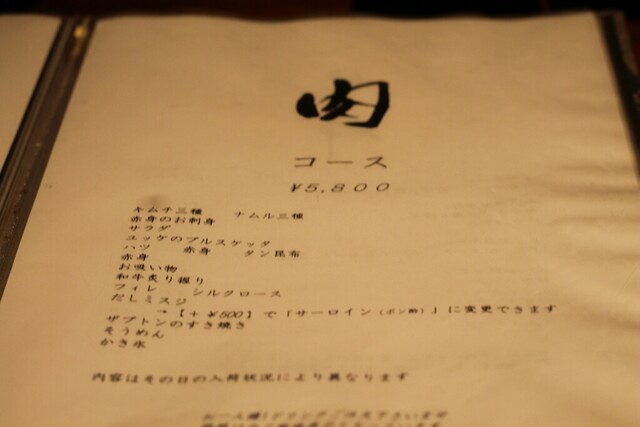 肉
コース
¥5,800
キムチ三種　ナムル三種
赤身のお刺身
サラダ
ユッケのブルスケッタ
ハツ　赤身　タン昆布
赤身
お吸い物
和牛炙り握り
フィレ　シルクロース
だしミスジ
→【+¥500】で「サーロイン(ポン酢)」に変更できます
ザブトンのすき焼き
そうめん
かき氷
内容はその日の入荷状況により異なります
お一人様1ドリンクご注文下さいませ